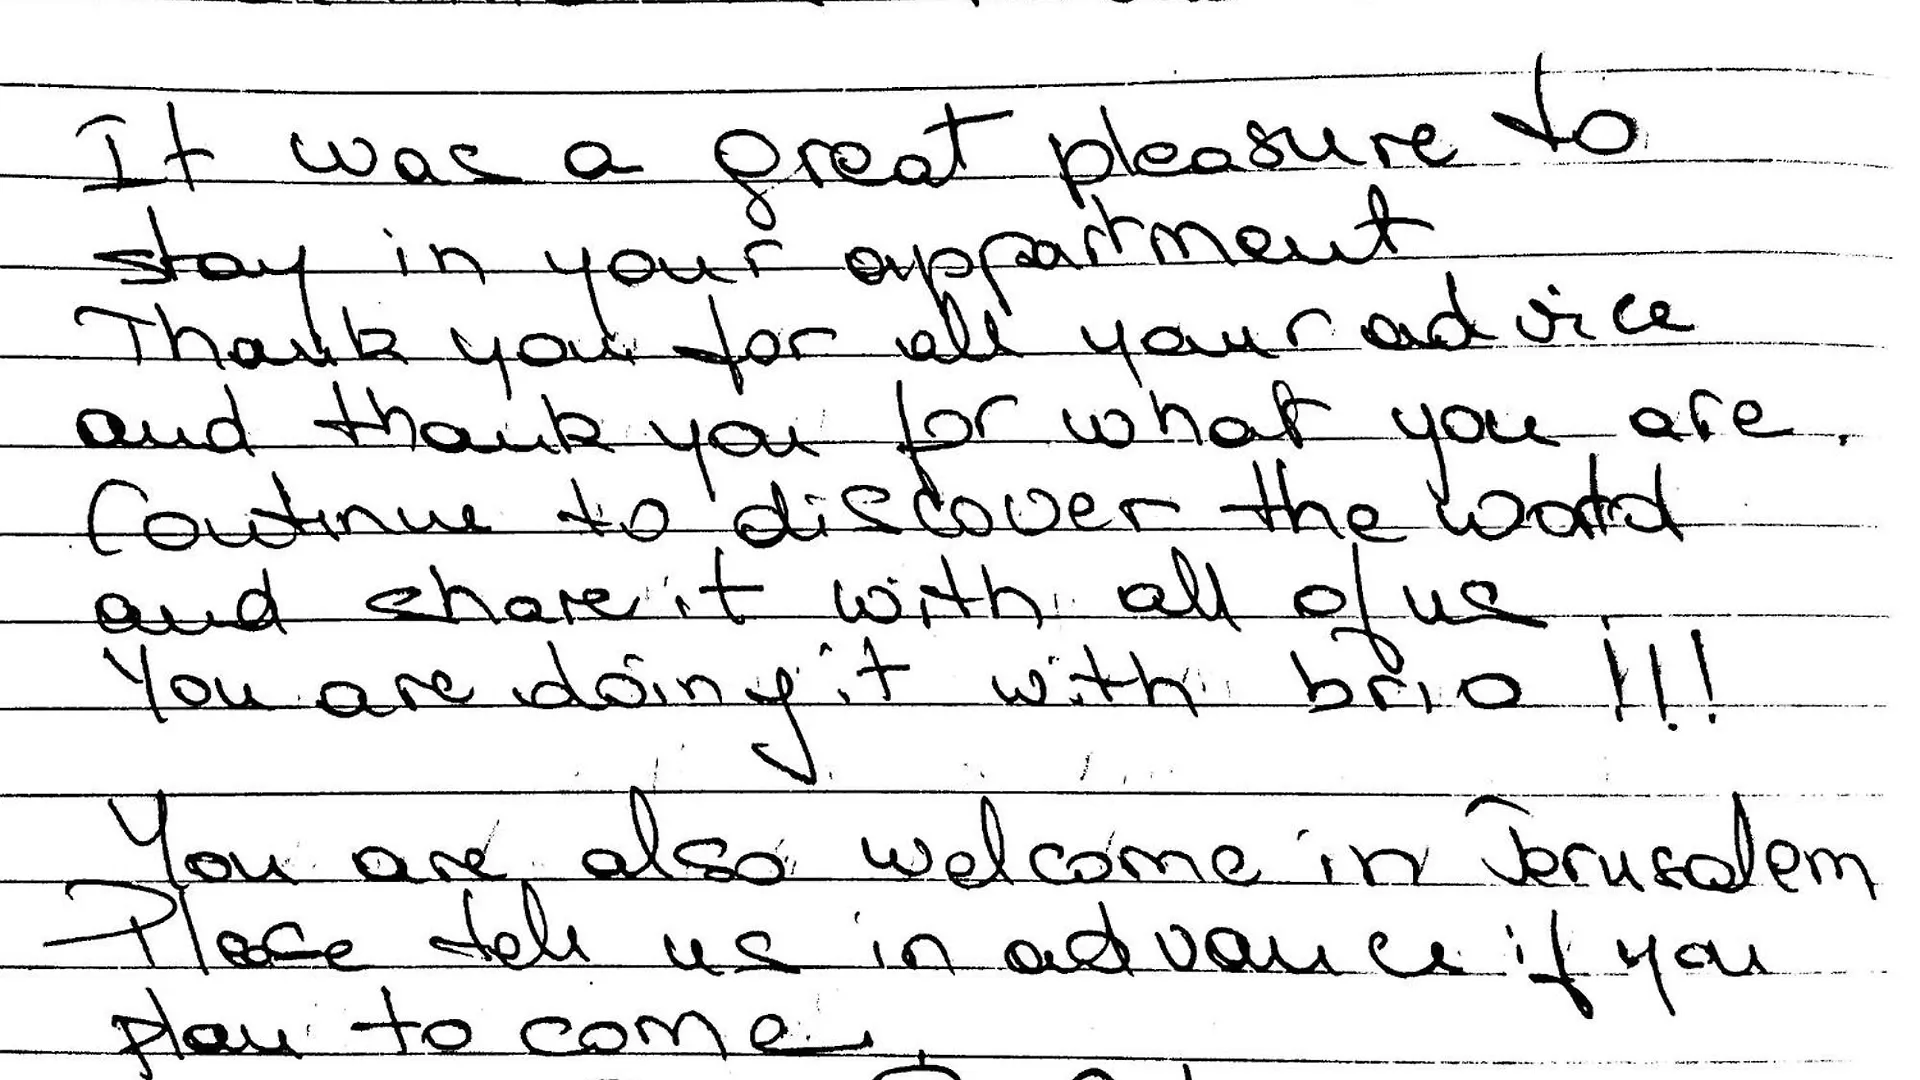 It was a great pleasure to
stay in your appartment
Thank you for all your advice
and thank you for what you are.
Continue to discover the world
and share it with all of us.
You are doing it with brio !!!
You are also welcome in Jerusalem
Please tell us in advance if you
plan to come.